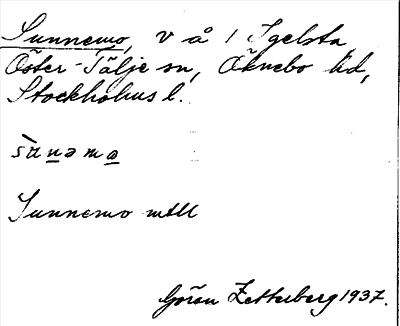 Sunnemo, v å / Igelsta,
Öster-Tälje sn, Öknebo hd,
Stockholms l.
sùnəmω
Sunnemo mtll
Göran Zetterberg 1937.